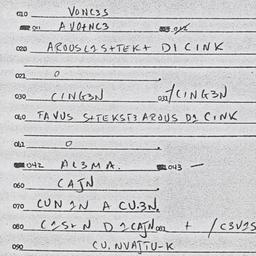 010 VONC3S
011 AVO+NC3
020 AROUS L2 S+TEK+ DI CINK
021 0
030 CING3N 031 /CING3N
040 FAVUS S+TEKST3 AROUS D2 CINK
041 0
042 AL3MA. 043 —
060 CAJN
070 CUN 2N A CU.3N.
080 C2S+N D2CAJN 081 + /C3V2S
090 CU.NVATTU-K